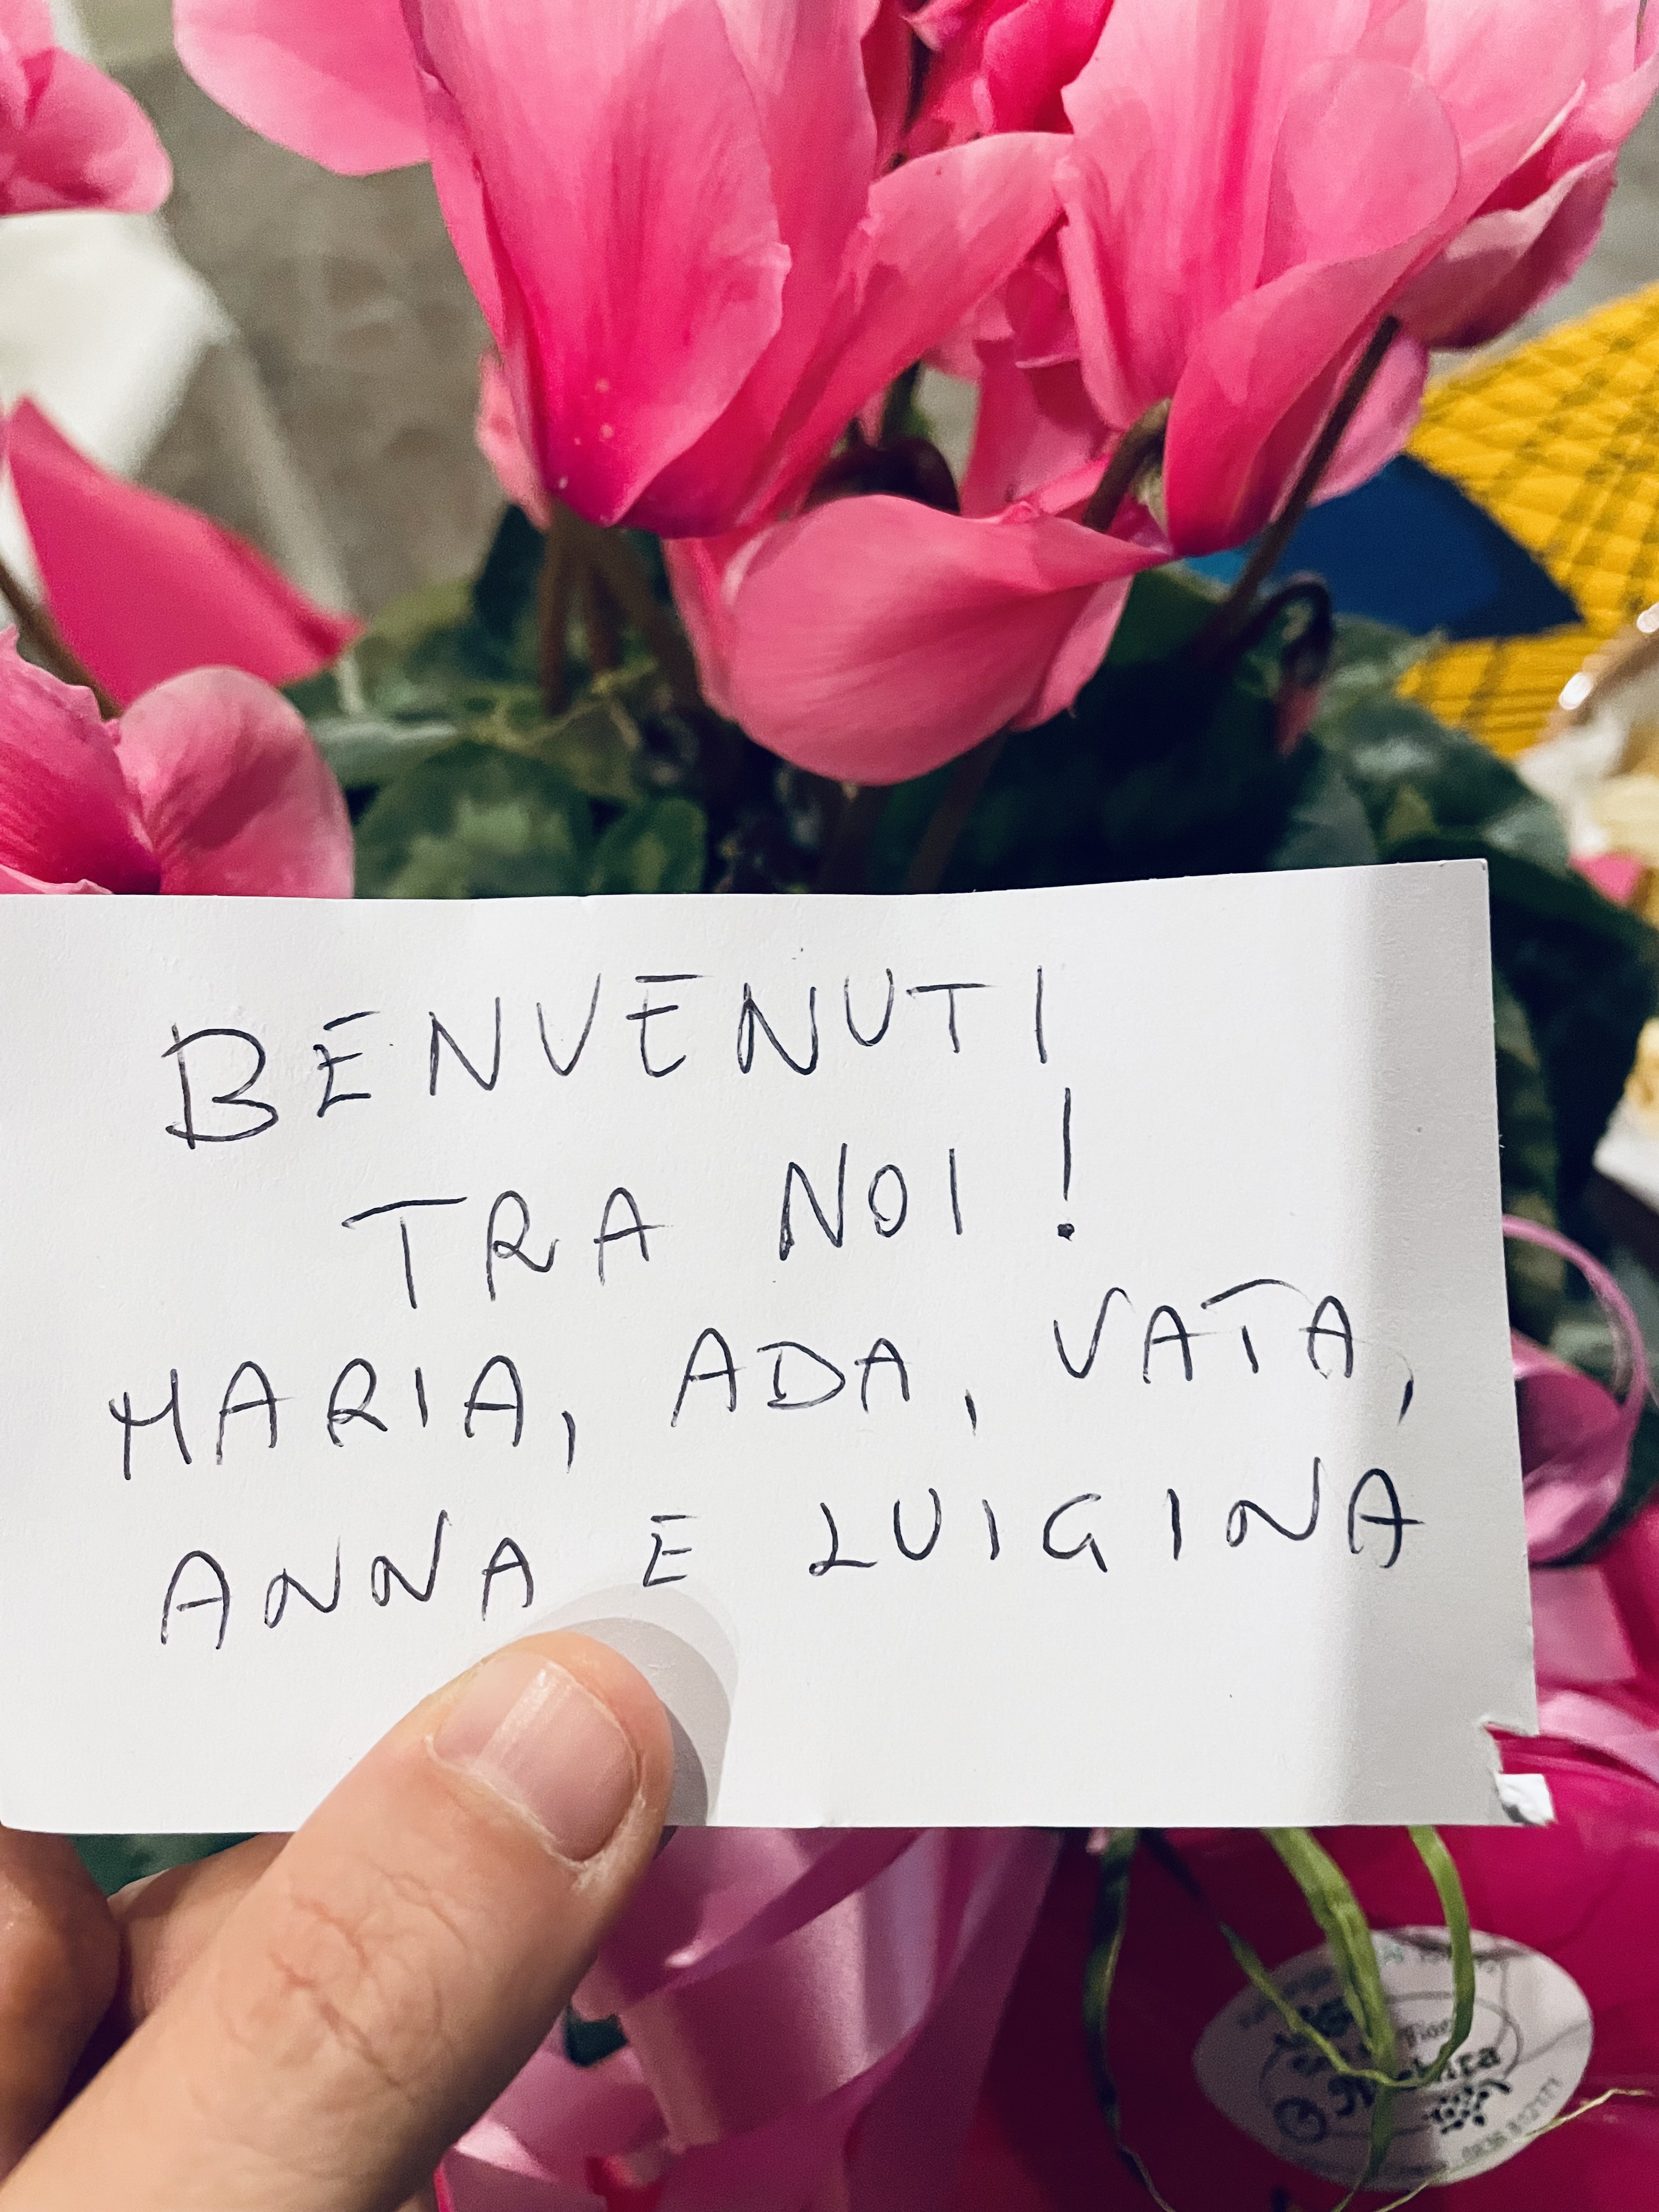 BENVENUTI
TRA NOI!
MARIA, ADA, VATA,
ANNA E LUIGINA